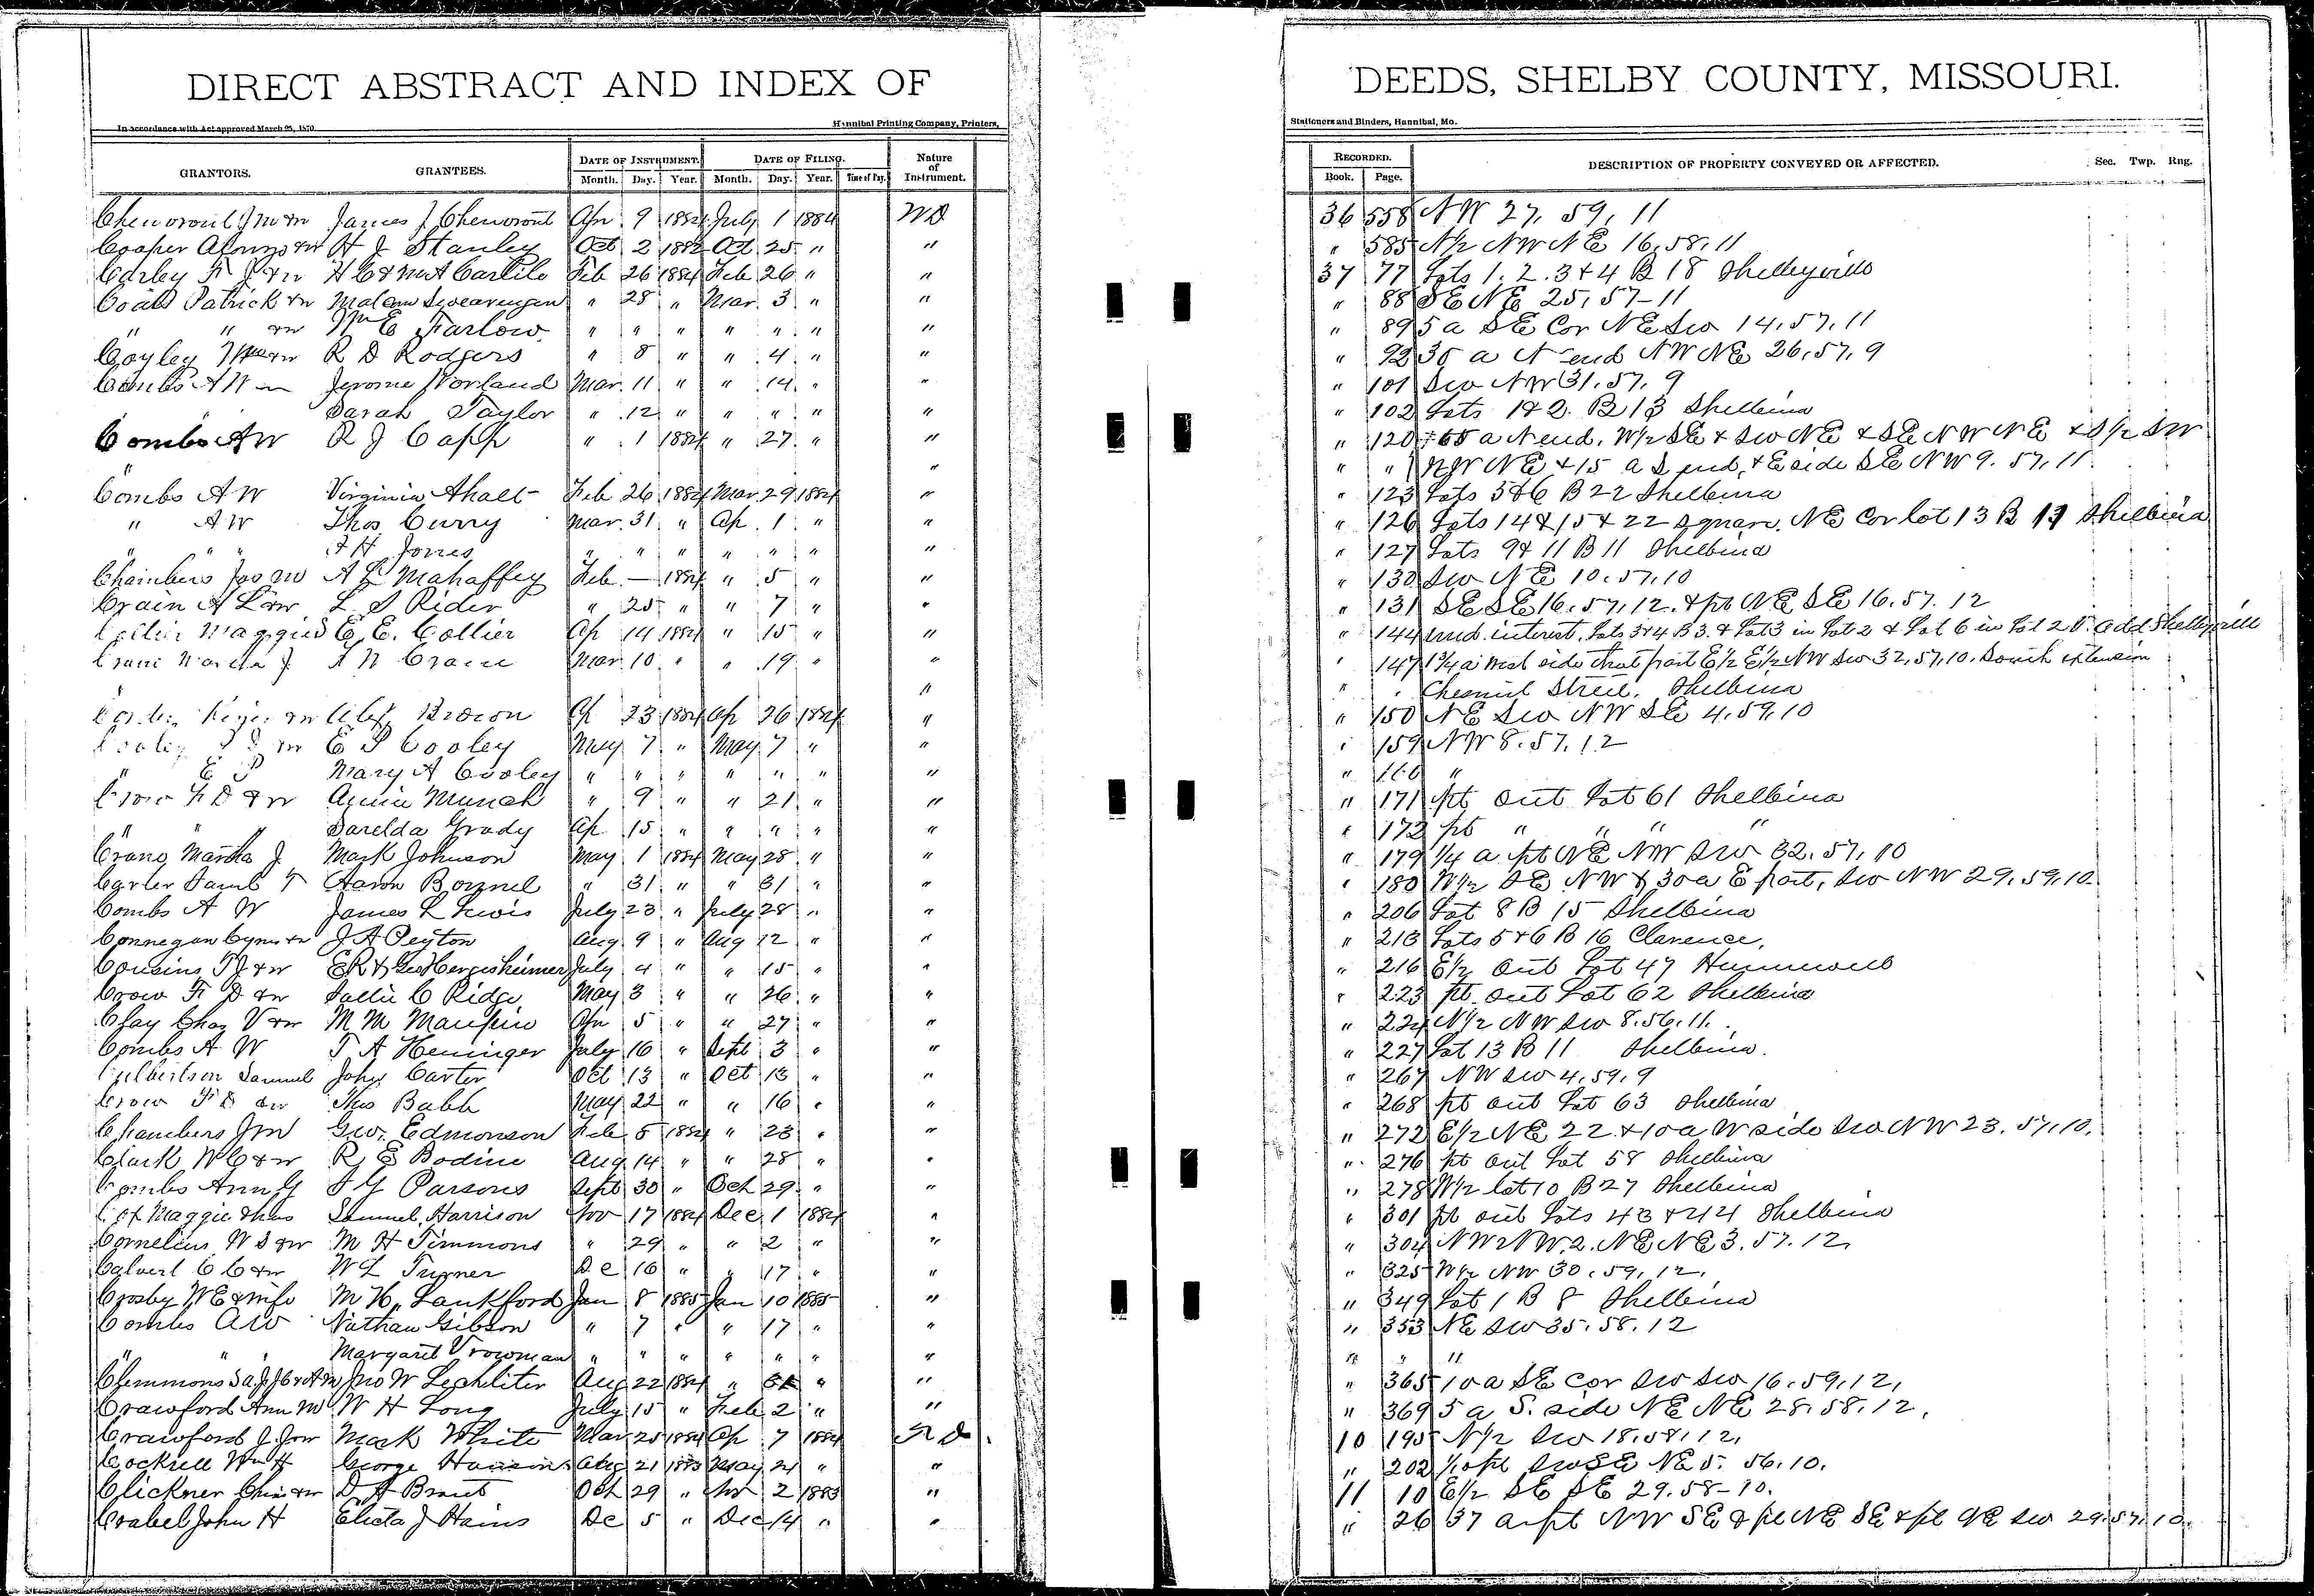 DIRECT ABSTRACT AND INDEX OF DEEDS, SHELBY COUNTY, MISSOURI.
In accordance with Act approved March 25, 1870 Hannibal Printing Company, Printers, Stationers and Binders, Hannibal, Mo.
GRANTORS. GRANTEES. DATE OF INSTRUMENT. DATE OF FILING. Nature of Instrument. RECORDED. DESCRIPTION OF PROPERTY CONVEYED OR AFFECTED. Sec. Twp. Rng.
Month. Day. Year. Month. Day. Year. Time of Day. Book. Page.
Chenoront J M & W James J Chenoront Apr 9 1884 July 1 1884 W D 36 558 N W 27, 59, 11
Cooper Alonzo & W H J Stanley Oct 2 1882 Oct 25 " " " 585 N 1/2 NW NE 16, 58, 11
Corley F J & W H C & M A Carlile Feb 26 1884 Feb 26 " " 37 77 Lots 1. 2. 3 & 4 B 18 Shelbyville
Coats Patrick & W Swearengen " 28 " Mar 3 " " " 88 SE NE 25, 57-11
" " & W Wm E Farlow " " " " " " " " 89 5 a SE Cor NE SW 14, 57, 11
Coyley & W R D Rodgers " 8 " " 4 " " " 92 35 a N end NW NE 26, 57, 9
Combs A W Jerome Worland Mar 11 " " 14 " " " 101 SW NW 31, 57, 9
Sarah Taylor " 12 " " " " " " 102 Lots 1 & 2 B 13 Shelbina
Combs A W R J Capp " 1 1884 " 27 " " " 120 a N end, W 1/2 SE & SW NE & SE NW NE & S 1/2 SW
" " " " NW NE & 15 a S end, & E side SE NW 9. 57, 11
Combs A W Virginia Ahalt Feb 26 1884 Mar 29 1884 " " 123 Lots 5 & 6 B 22 Shelbina
" A W Thos Curry Mar 31 " Ap 1 " " " 126 Lots 14 & 15 & 22 square NE Cor lot 13 B 11 Shelbina
" " " H Jones " " " " " " " " 127 Lots 9 & 11 B 11 Shelbina
Chambers Jas M A L Mahaffey Feb — 1884 " 5 " " " 130 SW NE 10, 57, 10
Crain A L & W L S Rider " 25 " " 7 " " " 131 SE SE 16, 57, 12. & pt NE SE 16. 57. 12
Collier Maggie S E. E. Collier Ap 14 1884 " 15 " " " 144 und interest, Lots 3 & 4 B 3. & Lot 3 in Lot 2 & Lot 6 in Lot 2 Add Shelbyville
Crane Martha J N Crane Mar 10 " " 19 " " " 147 1 3/4 a west side that part E 1/2 E 1/2 NW SW 32, 57, 10, South extension
" " " Chesnut Street. Shelbina
& W Alex Brown Ap 23 1884 Ap 26 1884 " " 150 NE SW NW SE 4, 59, 10
Cooley & W E P Cooley May 7 " May 7 " " " 159 NW 8. 57, 12
" E P Mary A Cooley " " " " " " " " 160 "
Crow F D & W Annie Munch " 9 " " 21 " " " 171 pt Out Lot 61 Shelbina
" " " Sarelda Grady Ap 15 " " " " " " 172 pt " " " "
Crane Martha J Mark Johnson May 1 1884 May 28 " " " 179 1/4 a pt NE NW SW 32, 57, 10
Carter Saml T Aaron Bonnel " 31 " " 31 " " " 180 W 1/2 SE NW & 30 a E part, SW NW 29, 59, 10
Combs A W James L Lewis July 23 " July 28 " " " 206 Lot 8 B 15 Shelbina
Connegan Cyrus & W J A Peyton Aug 9 " Aug 12 " " " 213 Lots 5 & 6 B 16 Clarence,
Cousins T J & W E R & Geo Hergesheimer July 4 " " 15 " " " 216 E 1/2 Out Lot 47 Hunnewell
Crow F D & W Sallie C Ridge May 3 " " 26 " " " 223 pt out Lot 62 Shelbina
Clay Chas V & W M M Maupin Apr 5 " " 27 " " " 224 N 1/2 NW SW 8, 56, 11.
Combs A W T A Heninger July 16 " Sept 3 " " " 227 Lot 13 B 11 Shelbina.
Culbertson Samuel John Carter Oct 13 " Oct 13 " " " 267 NW SW 4, 59, 9
Crow F D & W Thos Babb May 22 " " 16 " " " 268 pt out Lot 63 Shelbina
Chambers J M Geo. Edmonson Feb 5 1884 " 23 " " " 272 E 1/2 NE 22 & 10 a W side SW NW 23, 57, 10,
Clark W C & W R E Bodine Aug 14 " " 28 " " " 276 pt out Lot 58 Shelbina
Combs Ann G J G Parsons Sept 30 " Oct 29 " " " 278 W 1/2 lot 10 B 27 Shelbina
Cox Maggie & hus Samuel Harrison Nov 17 1884 Dec 1 1884 " " 301 pt out Lots 43 & 44 Shelbina
Cornelius W S & W M H Timmons " 29 " " 2 " " " 304 NW NW 2. NE NE 3. 57. 12
Calvert C C & W W L Turner De 16 " " 17 " " " 325 W 1/2 NW 30, 59, 12.
Crosby W E & wife M H Lankford Jan 8 1885 Jan 10 1885 " " 349 Lot 1 B 8 Shelbina
Combs A W Nathan Gibson " 7 " " 17 " " " 353 NE SW 35. 58. 12
" " Margaret Vrowman " " " " " " " " " "
Clemmons Jno W Lechliter Aug 22 1884 " 31 " " " 365 10 a SE Cor SW SW 16, 59, 12,
Crawford Ann M W H Long July 15 " Feb 2 " " " 369 5 a S. side NE NE 28. 58. 12.
Crawford J J & W Mark White Mar 25 1884 Ap 7 1884 10 195 N 1/2 SW 18, 58, 12,
Cockrell Wm H George Aug 21 1883 May 21 " " " 202 SW SE NE 5. 56. 10.
Clickner & W D A Brant Oct 29 " Nov 2 1883 " 11 10 E 1/2 SE SE 29. 58-10.
Crabel John H Electa J Hains De 5 " Dec 14 " " " 26 37 a pt NW SE & pt NE SE & pt NE SW 29. 57. 10.